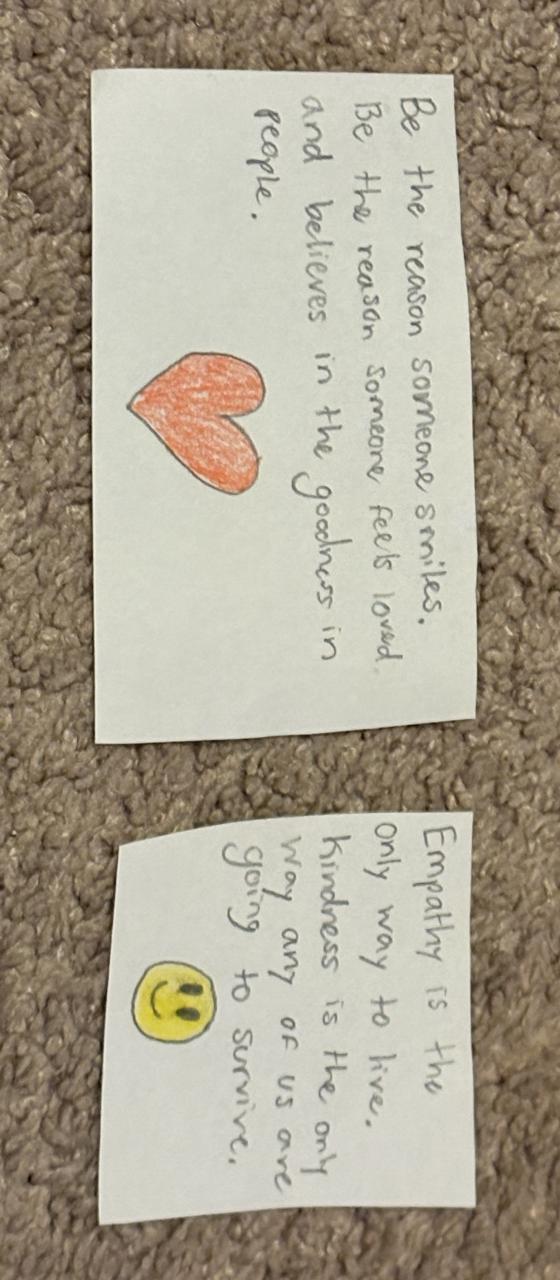 Be the reason someone smiles.
Be the reason someone feels loved
and believes in the goodness in
people.
Empathy is the
only way to live.
Kindness is the only
way any of us are
going to survive.